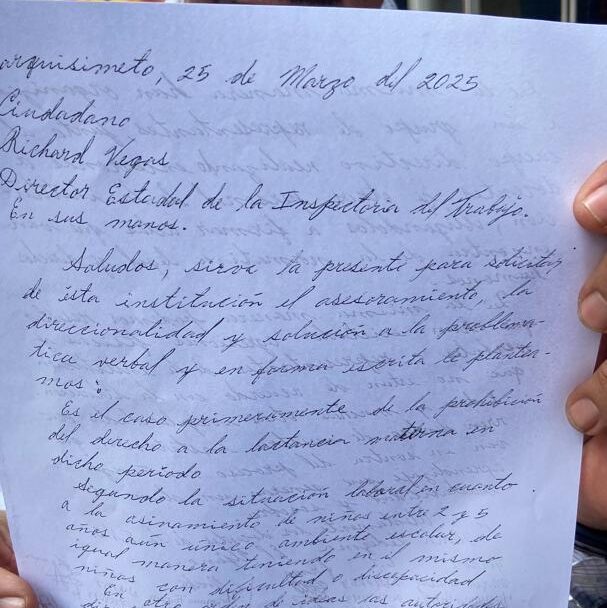 arquisimeto, 25 de Marzo del 2025
Ciudadano
Richard Vegas
Director Estadal de la Inspectoria del Trabajo.
En sus manos.
Saludos, sirva la presente para solicitar
de ésta institución el asesoramiento, la
direccionalidad y solución a la problema-
tica verbal y en forma escrita le plantea-
mos:
Es el caso primeramente de la prohibición
del derecho a la lactancia materna en
dicho periodo
Segundo la situación laboral en cuanto
a la asinamiento de niños entre 2 y 5
años aún único ambiente escolar, de
igual manera teniendo en el mismo
niños con dificultad o discapacidad
En otro orden de ideas las autoridades